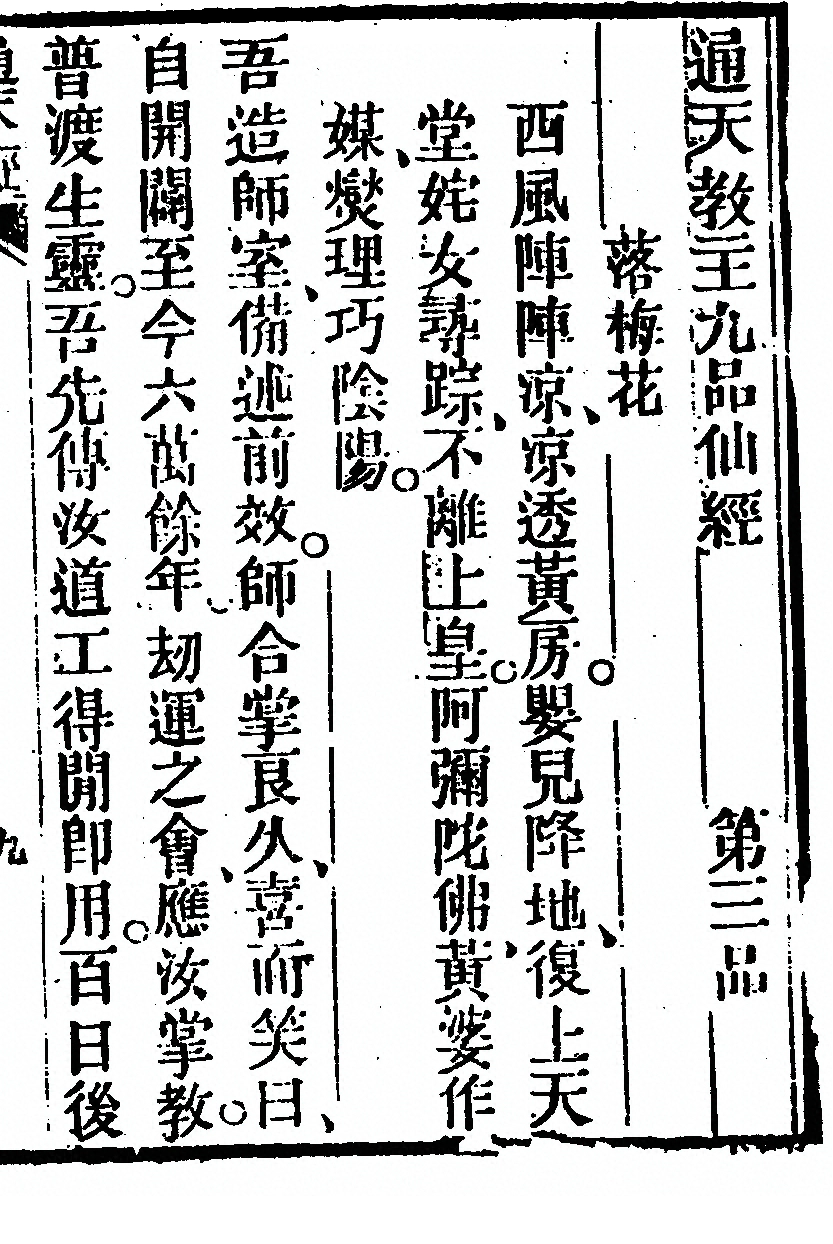 通天教主九品仙經　第三品
落梅花
西風陣陣涼、涼透黃房。嬰兒降地、復上天
堂、姹女尋踪、不離上皇。阿彌陀佛、黃婆作
媒、燮理巧陰陽。
吾造師室、備述前效。師合掌良久、喜而笑曰、
自開闢至今六萬餘年、劫運之會、應汝掌教。
普渡生靈。吾先傳汝道工得閒卽用。百日後
九